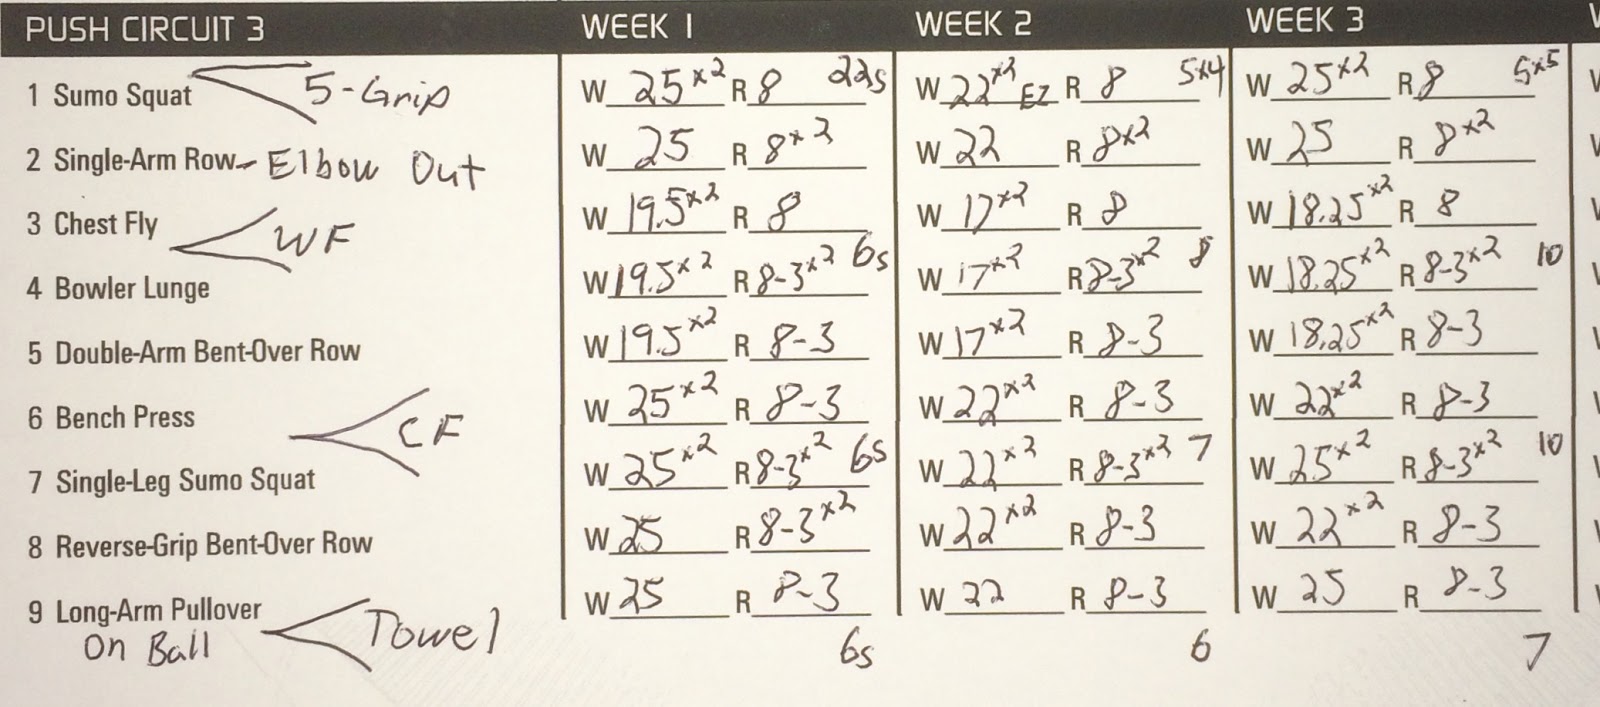 PUSH CIRCUIT 3 WEEK 1 WEEK 2 WEEK 3
1 Sumo Squat 5-Grip W 25x2 R 8 22s W 22x2 EZ R 8 5x4 W 25x2 R 8 5x5
2 Single-Arm Row - Elbow Out W 25 R 8x2 W 22 R 8x2 W 25 R 8x2
3 Chest Fly W 19.5x2 R 8 W 17x2 R 8 W 18.25x2 R 8
WF
4 Bowler Lunge W 19.5x2 R 8-3x2 6s W 17x2 R 8-3x2 8 W 18.25x2 R 8-3x2 10
5 Double-Arm Bent-Over Row W 19.5x2 R 8-3 W 17x2 R 8-3 W 18.25x2 R 8-3
6 Bench Press W 25x2 R 8-3 W 22x2 R 8-3 W 22x2 R 8-3
CF
7 Single-Leg Sumo Squat W 25x2 R 8-3x2 6s W 22x2 R 8-3x2 7 W 25x2 R 8-3x2 10
8 Reverse-Grip Bent-Over Row W 25 R 8-3x2 W 22x2 R 8-3 W 22x2 R 8-3
9 Long-Arm Pullover W 25 R 8-3 W 22 R 8-3 W 25 R 8-3
On Ball Towel 6s 6 7